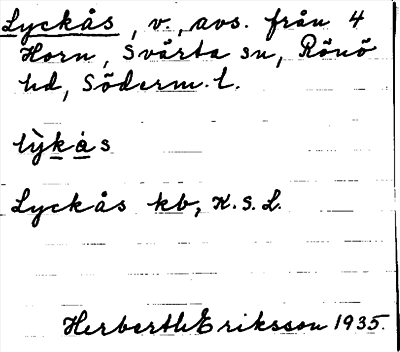 Lyckås, v., avs. från 4
Horn, Svärta sn, Rönö
hd, Söderm. l.
lỳkȧs
Lyckås kb, K.S.L.
Herberth Eriksson 1935.